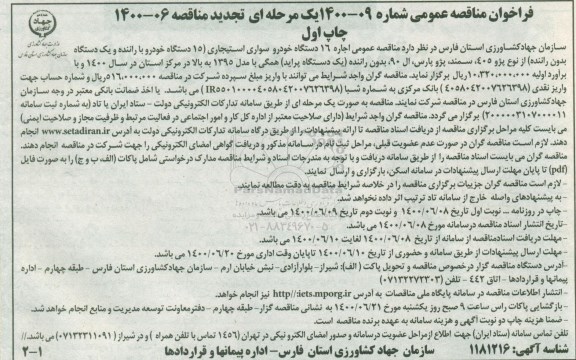 فراخوان مناقصه عمومی شماره ۰۹-۱۴۰۰ یک مرحله ای تجدید مناقصه ۰۶-۱۴۰۰
چاپ اول
سازمان جهادکشاورزی استان فارس در نظر دارد مناقصه عمومی اجاره ۱۶ دستگاه خودرو سواری استیجاری (۱۵ دستگاه خودرو با راننده و یک دستگاه
بدون راننده) از نوع پژو ۴۰۵، سمند، پژو پارس، ال ۹۰، بدون راننده (یک دستگاه پراید) همگی با مدل ۱۳۹۵ به بالا در مرکز استان در سال ۱۴۰۰ و با
برآورد اولیه ۱۰,۳۲۰,۰۰۰,۰۰۰ ریال برگزار نماید. مناقصه گران واجد شرایط می توانند با واریز مبلغ سپرده شرکت در مناقصه ۱۶,۰۰۰,۰۰۰ دریال و شماره حساب جهت
واریز نقدی (۴۰۵۸۰۴۲۰۰۷۶۲۶۳۹۸) بانک مرکزی به شماره شبا می باشند. یا اخذ ضمانت بانکی معتبر در وجه سازمان
جهادکشاورزی استان فارس در مناقصه شرکت نمایند. مناقصه به صورت یک مرحله ای از طریق سامانه تدارکات الکترونیکی دولت - ستاد ایران با تاد (به شماره ثبت سامانه
۲۰۰۰۰۰۳۱۰۷۰۰۰۰۱۱) برگزار می گردد. مناقصه گران واجد شرایط (دارای صلاحیت معتبر از اداره کل کار و امور اجتماعی در فعالیت مرتبط و ظرفیت مجاز و صلاحیت ایمنی)
می بایست کلیه مراحل برگزاری مناقصه از دریافت اسناد مناقصه تا ارائه پیشنهادات را از طریق درگاه سامانه تدارکات الکترونیکی دولت به آدرس www.setadiran.ir انجام
دهند. لازم است مناقصه گران در صورت عدم عضویت قبلی، مراحل ثبت نام در سامانه مذکور و دریافت گواهی امضای الکترونیکی را جهت شرکت در مناقصه انجام دهند.
مناقصه گران می بایست اسناد مناقصه را از طریق سامانه دریافت و با توجه به مندرجات اسناد و شرایط مناقصه مدارک درخواستی شامل پاکات (الف، ب و ج) را به صورت فایل
(pdf) تا پایان مهلت ارسال پیشنهادات در سامانه اسکن، بارگذاری و ارسال نمایند.
- لازم است مناقصه گران جزییات برگزاری مناقصه را در خلاصه شرایط مناقصه به دقت مطالعه نمایند.
- به پیشنهادهای واصله خارج از سامانه تاد ترتیب اثر داده نخواهد شد.
- چاپ در روزنامه ... نوبت اول تاریخ ۱۴۰۰/۰۶/۰۸ و نوبت دوم تاریخ ۱۴۰۰/۰۶/۰۹ می باشد.
- تاریخ انتشار اسناد مناقصه درسامانه مورخ ۱۴۰۰/۰۶/۰۸ می باشد.
- مهلت دریافت اسناد مناقصه از سامانه از تاریخ ۱۴۰۰/۰۶/۰۸ لغایت ۱۴۰۰/۰۶/۱۰ می باشد.
- مهلت ارسال پیشنهادات از طریق سامانه و حضوری از تاریخ ۱۴۰۰/۰۶/۱۰ تا پایان وقت اداری مورخ ۱۴۰۰/۰۶/۲۰ می باشد.
- آدرس دستگاه مناقصه گزار درخصوص مناقصه و تحویل پاکت (الف): شیراز - بلوار آزادی - نبش خیابان ارم - سازمان جهادکشاورزی استان فارس - طبقه چهارم - اداره
پیمانها و قراردادها - اتاق ۴۴۲ - تلفن (۰۷۱۳۲۲۷۲۳۰۳)
- انتشار اطلاعات مناقصه در سامانه پایگاه ملی مناقصات به آدرس http//:iets.mporg.ir نیز انجام خواهد شد.
- بازگشایی پاکات راس ساعت ۹ صبح روز یکشنبه مورخ ۱۴۰۰/۰۶/۲۱ به نشانی مناقصه گزار - طبقه چهارم - دفتر معاونت توسعه مدیریت و منابع انجام خواهد شد.
- ضمنا هزینه چاپ دو نوبت آگهی و هزینه سامانه به عهده برنده مناقصه است.
تلفن تماس سامانه (ستاد ایران) جهت اطلاع از مراحل عضویت درسامانه و صدور امضای الکترونیکی در تهران (۱۴۵۶ تماس با تلفن همراه) و در شیراز (۰۷۱۳۲۳۱۱۰۹۱) می باشد.
شناسه آگهی: ۱۱۸۱۲۱۶ سازمان جهاد کشاورزی استان فارس - اداره پیمانها و قراردادها ۲-۱